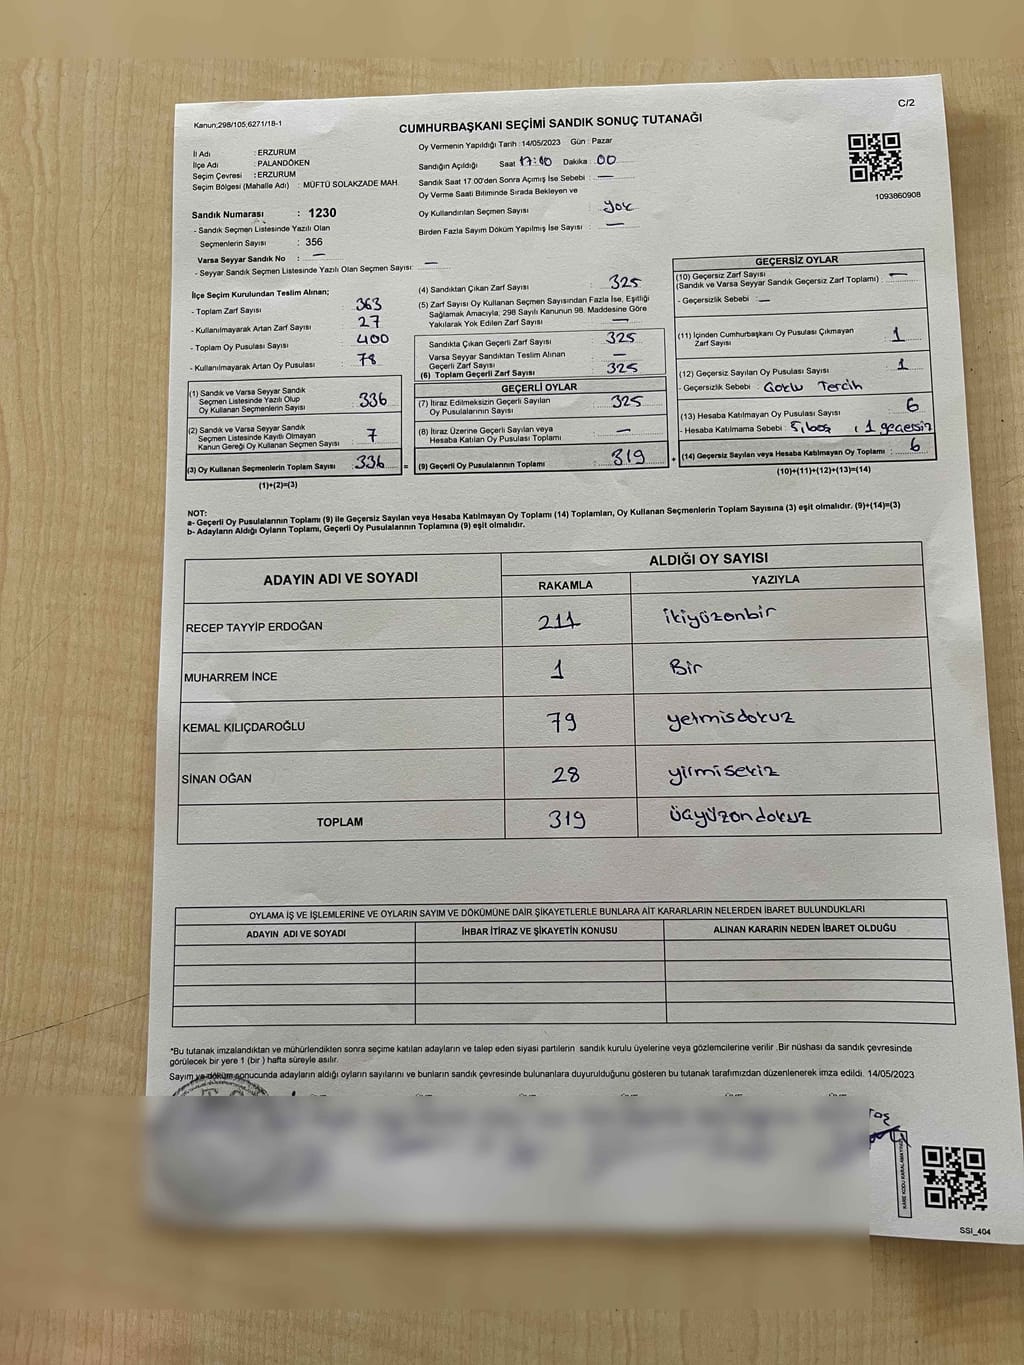 C/2
Kanun;298/105;6271/18-1
CUMHURBAŞKANI SEÇİMİ SANDIK SONUÇ TUTANAĞI
İl Adı : ERZURUM
İlçe Adı : PALANDÖKEN
Seçim Çevresi : ERZURUM
Seçim Bölgesi (Mahalle Adı) : MÜFTÜ SOLAKZADE MAH.
Oy Vermenin Yapıldığı Tarih : 14/05/2023 Gün : Pazar
Sandığın Açıldığı Saat 17:00 Dakika : 00
Sandık Saat 17.00'den Sonra Açımış İse Sebebi : —
Oy Verme Saati Bitiminde Sırada Bekleyen ve
Oy Kullandırılan Seçmen Sayısı : yok
Birden Fazla Sayım Döküm Yapılmış İse Sayısı : —
1093860908
Sandık Numarası : 1230
- Sandık Seçmen Listesinde Yazılı Olan
Seçmenlerin Sayısı : 356
Varsa Seyyar Sandık No : —
- Seyyar Sandık Seçmen Listesinde Yazılı Olan Seçmen Sayısı: —
İlçe Seçim Kurulundan Teslim Alınan;
- Toplam Zarf Sayısı : 363
- Kullanılmayarak Artan Zarf Sayısı : 27
- Toplam Oy Pusulası Sayısı : 400
- Kullanılmayarak Artan Oy Pusulası : 78
(1) Sandık ve Varsa Seyyar Sandık
Seçmen Listesinde Yazılı Olup
Oy Kullanan Seçmenlerin Sayısı : 336
(2) Sandık ve Varsa Seyyar Sandık
Seçmen Listesinde Kayıtlı Olmayan
Kanun Gereği Oy Kullanan Seçmen Sayısı : 7
(3) Oy Kullanan Seçmenlerin Toplam Sayısı : 336 =
(1)+(2)=(3)
(4) Sandıktan Çıkan Zarf Sayısı : 325
(5) Zarf Sayısı Oy Kullanan Seçmen Sayısından Fazla İse, Eşitliği
Sağlamak Amacıyla, 298 Sayılı Kanunun 98. Maddesine Göre
Yakılarak Yok Edilen Zarf Sayısı : —
Sandıkta Çıkan Geçerli Zarf Sayısı : 325
Varsa Seyyar Sandıktan Teslim Alınan
Geçerli Zarf Sayısı : —
(6) Toplam Geçerli Zarf Sayısı : 325
GEÇERLİ OYLAR
(7) İtiraz Edilmeksizin Geçerli Sayılan
Oy Pusulalarının Sayısı : 325
(8) İtiraz Üzerine Geçerli Sayılan veya
Hesaba Katılan Oy Pusulası Toplamı : —
(9) Geçerli Oy Pusulalarının Toplamı : 319 +
GEÇERSİZ OYLAR
(10) Geçersiz Zarf Sayısı
(Sandık ve Varsa Seyyar Sandık Geçersiz Zarf Toplamı) : —
- Geçersizlik Sebebi : —
(11) İçinden Cumhurbaşkanı Oy Pusulası Çıkmayan
Zarf Sayısı : 1
(12) Geçersiz Sayılan Oy Pusulası Sayısı : 1
- Geçersizlik Sebebi : Çoklu Tercih
(13) Hesaba Katılmayan Oy Pusulası Sayısı : 6
- Hesaba Katılmama Sebebi : 5, boş , 1 geçersiz
(14) Geçersiz Sayılan veya Hesaba Katılmayan Oy Toplamı : 6
(10)+(11)+(12)+(13)=(14)
NOT:
a- Geçerli Oy Pusulalarının Toplamı (9) ile Geçersiz Sayılan veya Hesaba Katılmayan Oy Toplamı (14) Toplamları, Oy Kullanan Seçmenlerin Toplam Sayısına (3) eşit olmalıdır. (9)+(14)=(3)
b- Adayların Aldığı Oyların Toplamı, Geçerli Oy Pusulalarının Toplamına (9) eşit olmalıdır.
ADAYIN ADI VE SOYADI ALDIĞI OY SAYISI
RAKAMLA YAZIYLA
RECEP TAYYİP ERDOĞAN 211 ikiyüzonbir
MUHARREM İNCE 1 Bir
KEMAL KILIÇDAROĞLU 79 yetmisdokuz
SİNAN OĞAN 28 yirmisekiz
TOPLAM 319 üçyüzondokuz
OYLAMA İŞ VE İŞLEMLERİNE VE OYLARIN SAYIM VE DÖKÜMÜNE DAİR ŞİKAYETLERLE BUNLARA AİT KARARLARIN NELERDEN İBARET BULUNDUKLARI
ADAYIN ADI VE SOYADI İHBAR İTİRAZ VE ŞİKAYETİN KONUSU ALINAN KARARIN NEDEN İBARET OLDUĞU
*Bu tutanak imzalandıktan ve mühürlendikten sonra seçime katılan adayların ve talep eden siyasi partilerin sandık kurulu üyelerine veya gözlemcilerine verilir .Bir nüshası da sandık çevresinde
görülecek bir yere 1 (bir ) hafta süreyle asılır.
Sayım ve döküm sonucunda adayların aldığı oyların sayılarını ve bunların sandık çevresinde bulunanlara duyurulduğunu gösteren bu tutanak tarafımızdan düzenlenerek imza edildi. 14/05/2023
KARE KODU KARALAMAYINIZ
SSI_404